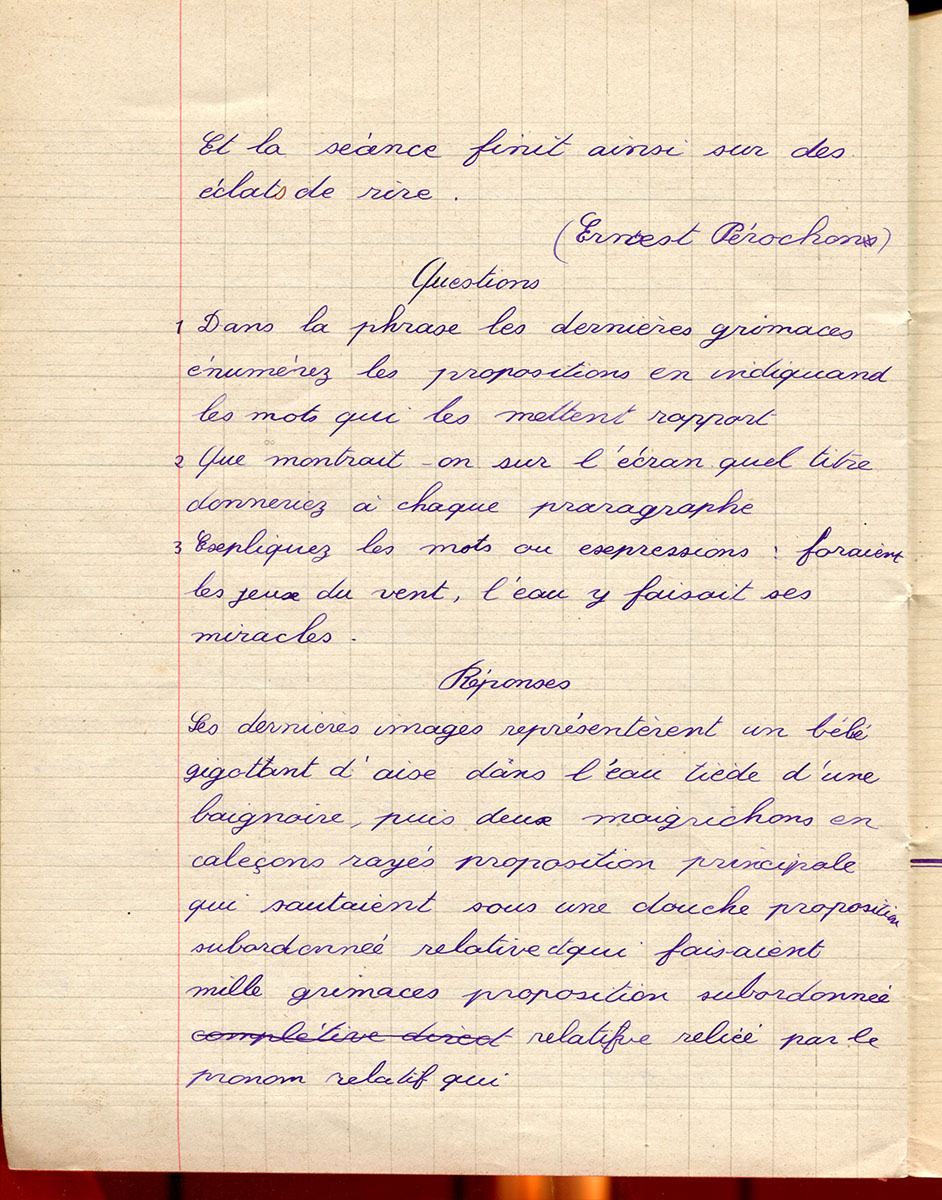 Et la séance finit ainsi sur des
éclats de rire .
(Ernest Pérochon)
Questions
1 Dans la phrase les dernières grimaces
énumérez les propositions en indiquand
les mots qui les mettent rapport
2 Que montrait-on sur l'écran quel titre
donneriez à chaque praragraphe
3 Expliquez les mots ou expressions : foraient
les jeux du vent, l'eau y faisait ses
miracles .
Réponses
Les dernières images représentèrent un bébé
gigottant d'aise dans l'eau tiède d'une
baignoire, puis deux maigrichons en
caleçons rayés proposition principale
qui sautaient sous une douche proposition
subordonneé relative et qui faisaient
mille grimaces proposition subordonneé
complétive direct relatifve relieé par le
pronom relatif qui